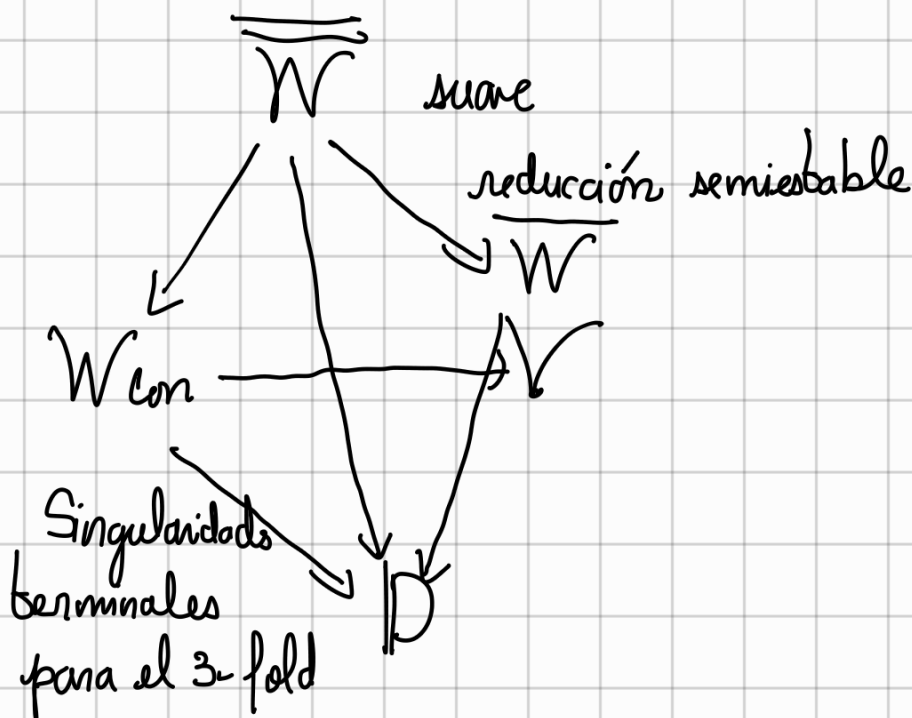 W suave
reducción semiestable
W
W con V
Singularidads
terminales
para el 3-fold
D